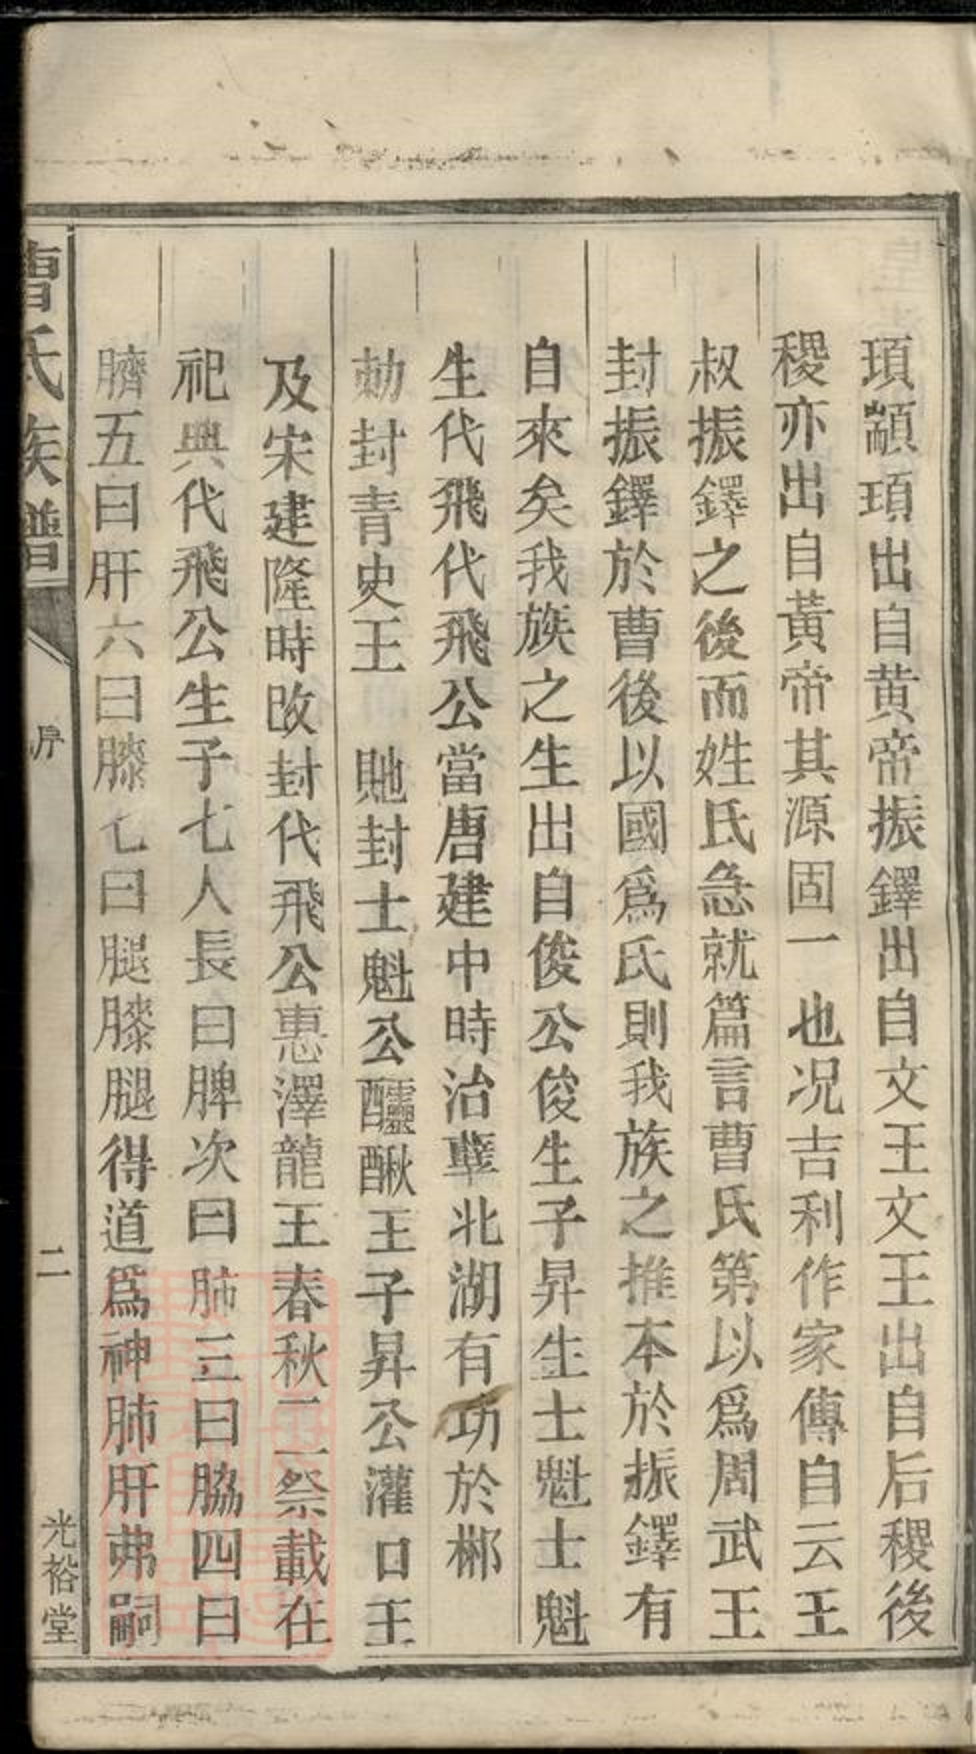 頊顓頊出自黄帝振鐸出自文王文王出自后稷後
稷亦出自黃帝其源固一也况吉利作家傳自云王
叔振鐸之後而姓氏急就篇言曹氏第以爲周武王
封振鐸於曹後以國爲氏則我族之推本於振鐸有
自來矣我族之生出自俊公俊生子昇生士魁士魁
生代飛代飛公當唐建中時治孽北湖有功於郴
勅封青史王 貤封士魁公醽醁王子昇公灌口王
及宋建隆時改封代飛公惠澤龍王春秋二祭載在
祀典代飛公生子七人長曰脾次曰肺三曰脇四曰
臍五曰肝六曰膝七曰腿膝腿得道爲神肺肝弗嗣
曹氏族譜
序
二
光裕堂